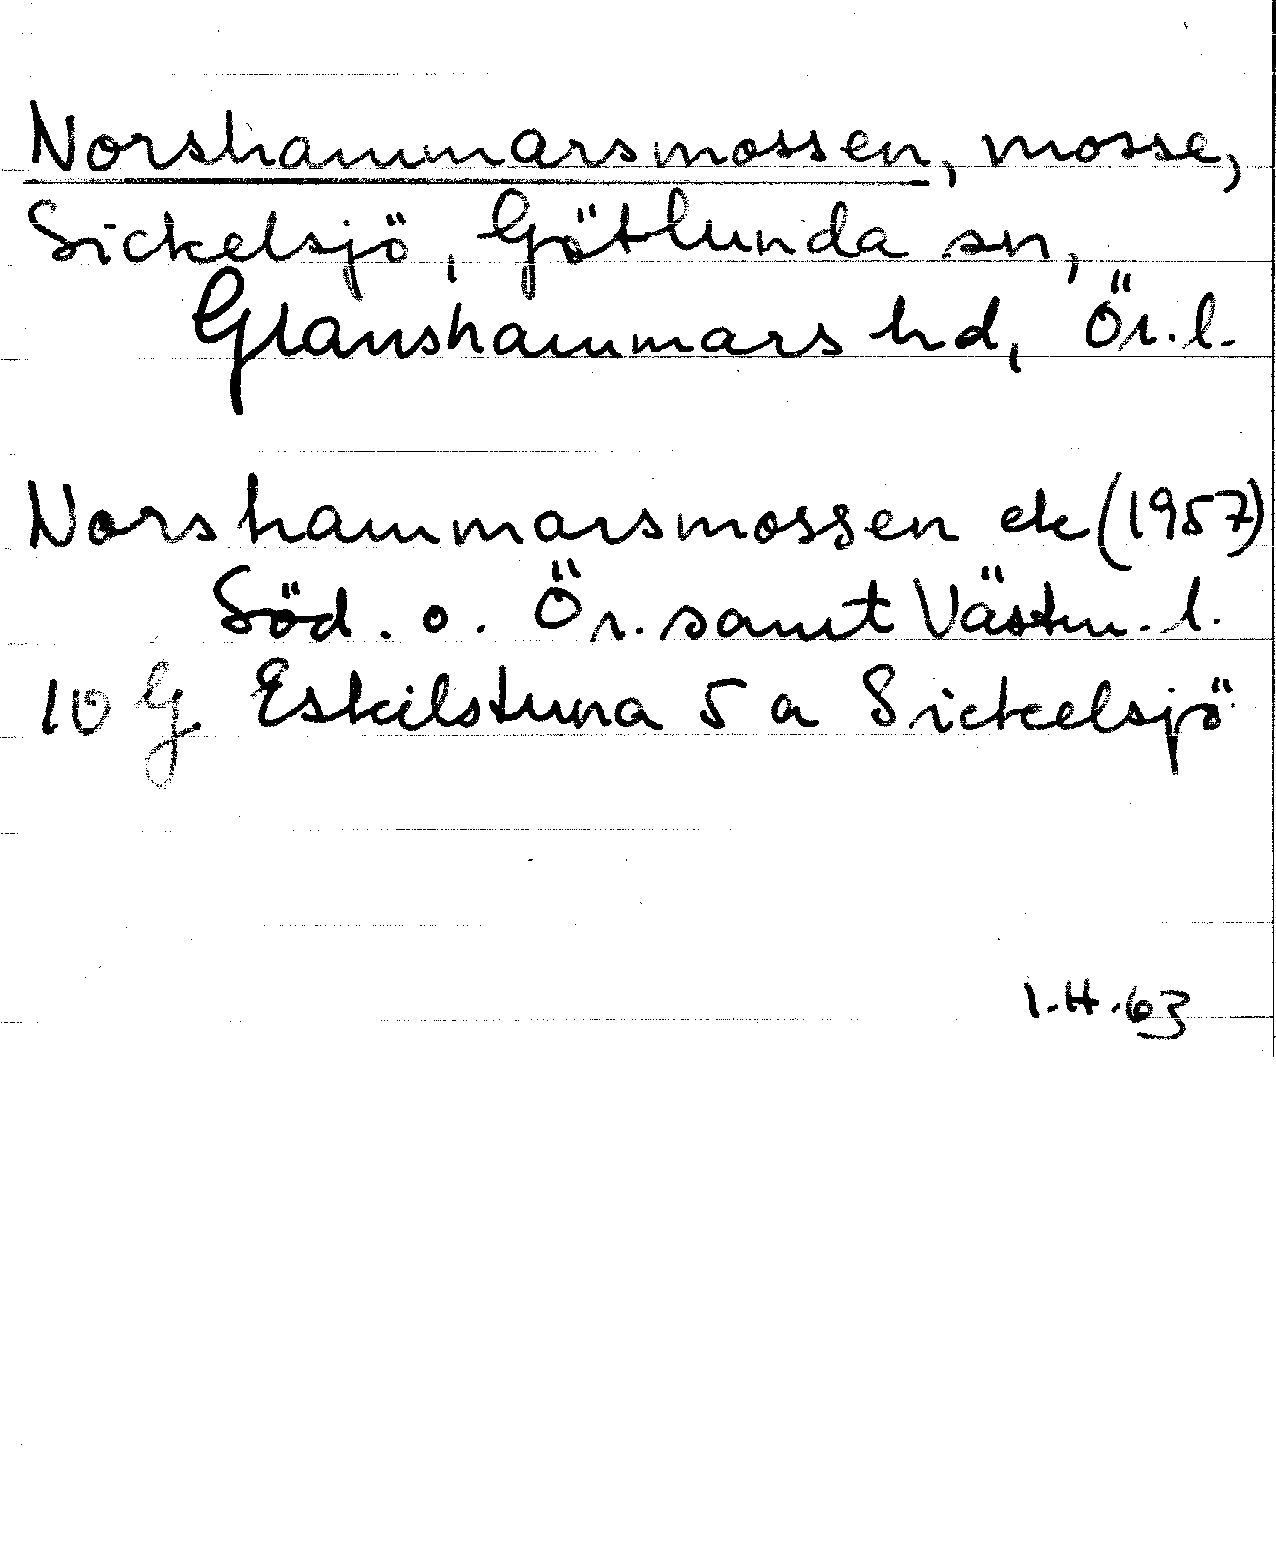 Norshammarsmossen, mosse,
Sickelsjö, Götlunda sn,
Glanshammars hd, Ör.l.
Norshammarsmossen ek (1957)
Söd. o. Ör. samt Västm. l.
10 G. Eskilstuna 5 a Sickelsjö
I.H.63